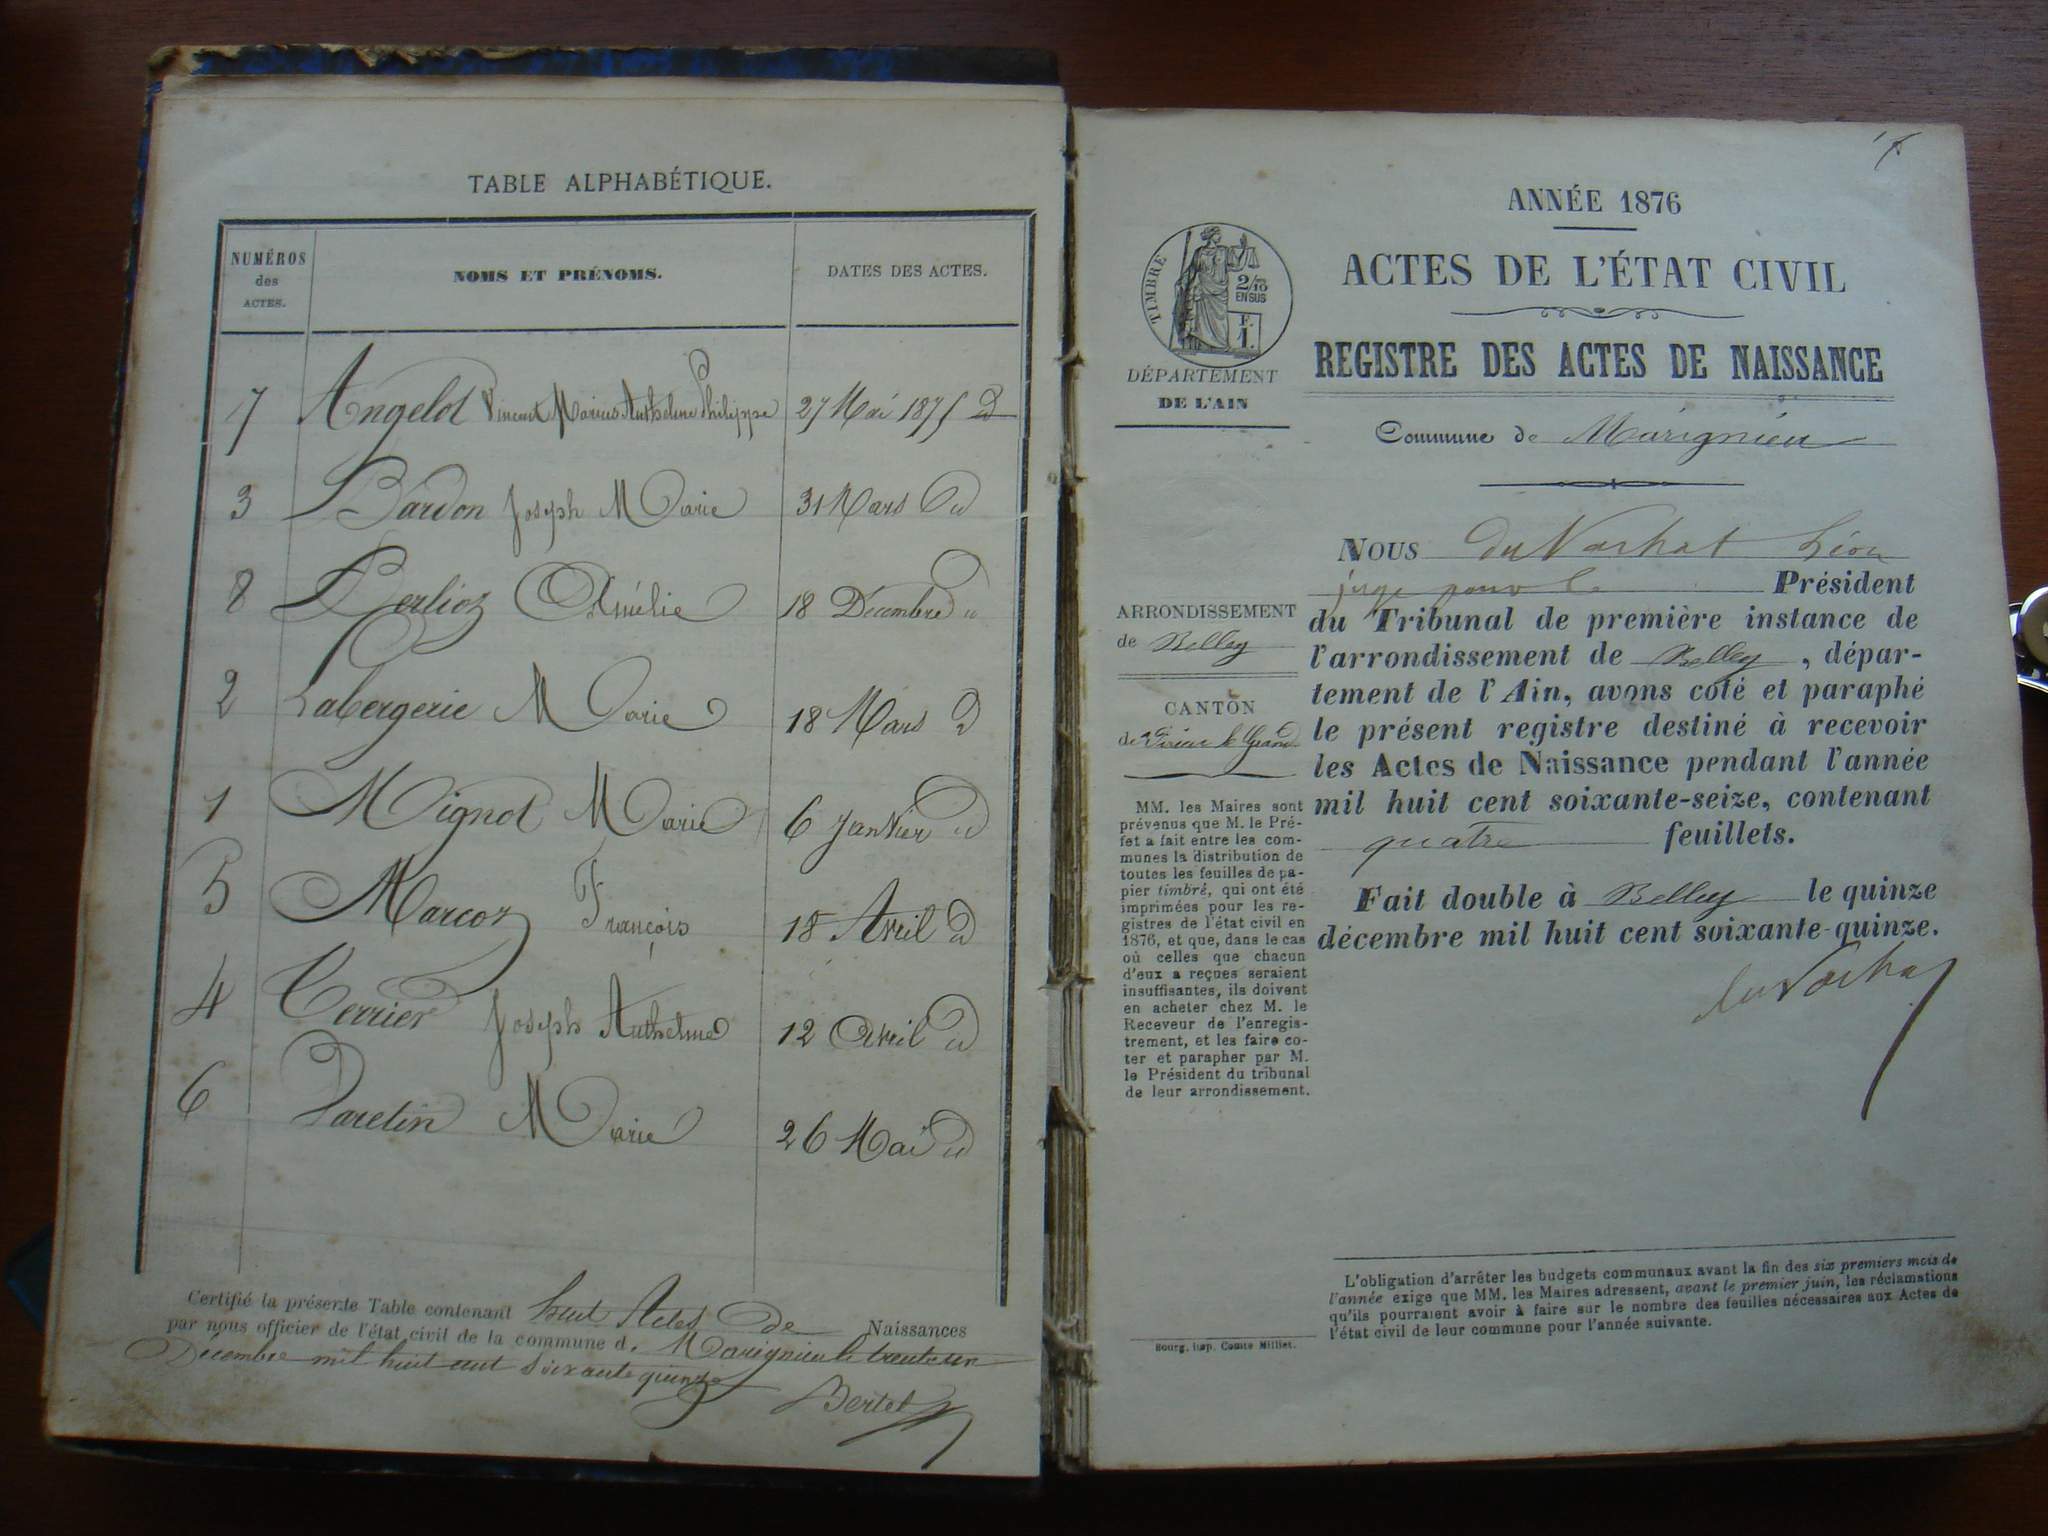 TABLE ALPHABÉTIQUE.
NUMÉROS
des
ACTES.
NOMS ET PRÉNOMS.
DATES DES ACTES.
7 Angelot Vincent Marius Anthelme Philippe 27 Mai 1875 d
3 Bardon Joseph Marie 31 Mars d
8 Berlioz Amélie 18 Décembre d
2 Labergerie Marie 18 Mars d
1 Mignot Marie 6 Janvier d
5 Marcoz François 18 Avril d
4 Terrier Joseph Anthelme 12 Avril d
6 Paretin Marie 26 Mai d
Certifié la présente Table contenant huit Actes de Naissances
par nous officier de l'état civil de la commune d. Marignieu le trente un
Décembre mil huit cent soixante quinze
Bertet
ANNÉE 1876
ACTES DE L'ÉTAT CIVIL
REGISTRE DES ACTES DE NAISSANCE
TIMBRE
2/10
EN SUS
F.
1.
DÉPARTEMENT
DE L'AIN
Commune de Marignieu
ARRONDISSEMENT
de Belley
CANTON
de Virieu le Grand
MM. les Maires sont
prévenus que M. le Pré-
fet a fait entre les com-
munes la distribution de
toutes les feuilles de pa-
pier timbré, qui ont été
imprimées pour les re-
gistres de l'état civil en
1876, et que, dans le cas
où celles que chacun
d'eux a reçues seraient
insuffisantes, ils doivent
en acheter chez M. le
Receveur de l'enregis-
trement, et les faire co-
ter et parapher par M.
le Président du tribunal
de leur arrondissement.
NOUS du Vachat Léon
juge pour le Président
du Tribunal de première instance de
l'arrondissement de Belley, dépar-
tement de l'Ain, avons coté et paraphé
le présent registre destiné à recevoir
les Actes de Naissance pendant l'année
mil huit cent soixante-seize, contenant
quatre feuillets.
Fait double à Belley le quinze
décembre mil huit cent soixante-quinze.
du Vachat
L'obligation d'arrêter les budgets communaux avant la fin des six premiers mois de
l'année exige que MM. les Maires adressent, avant le premier juin, les réclamations
qu'ils pourraient avoir à faire sur le nombre des feuilles nécessaires aux Actes de
l'état civil de leur commune pour l'année suivante.
Bourg, imp. Comte Milliet.